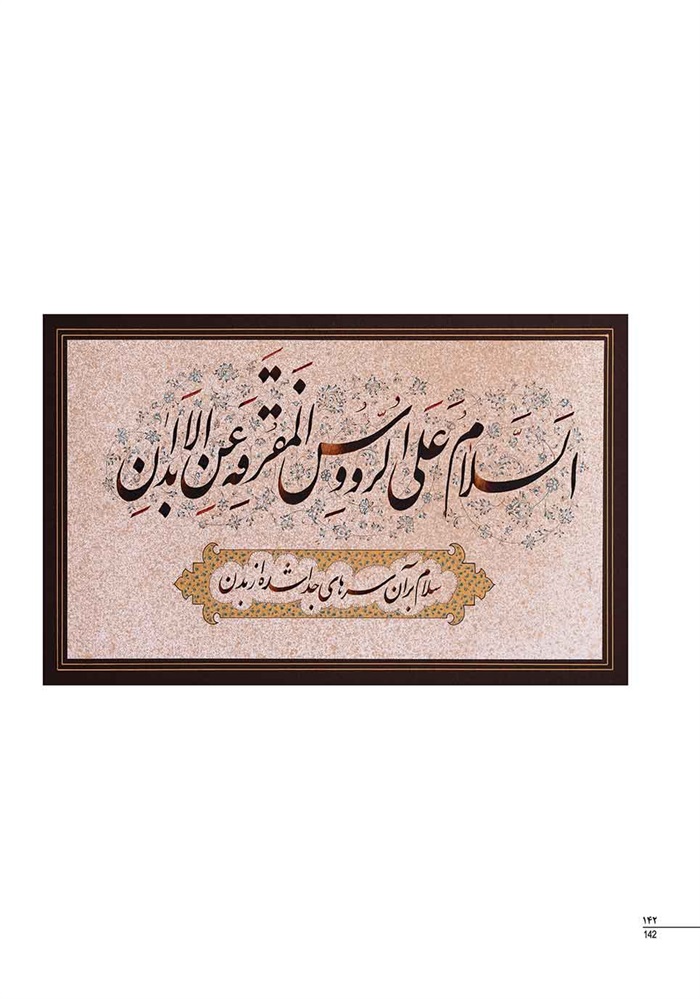 السَّلامُ عَلَی الرُّووسِ المُفَرَّقَهِ عَنِ الاَبدانِ
سلام بر آن سرهای جدا شده از بدن
۱۴۲
142